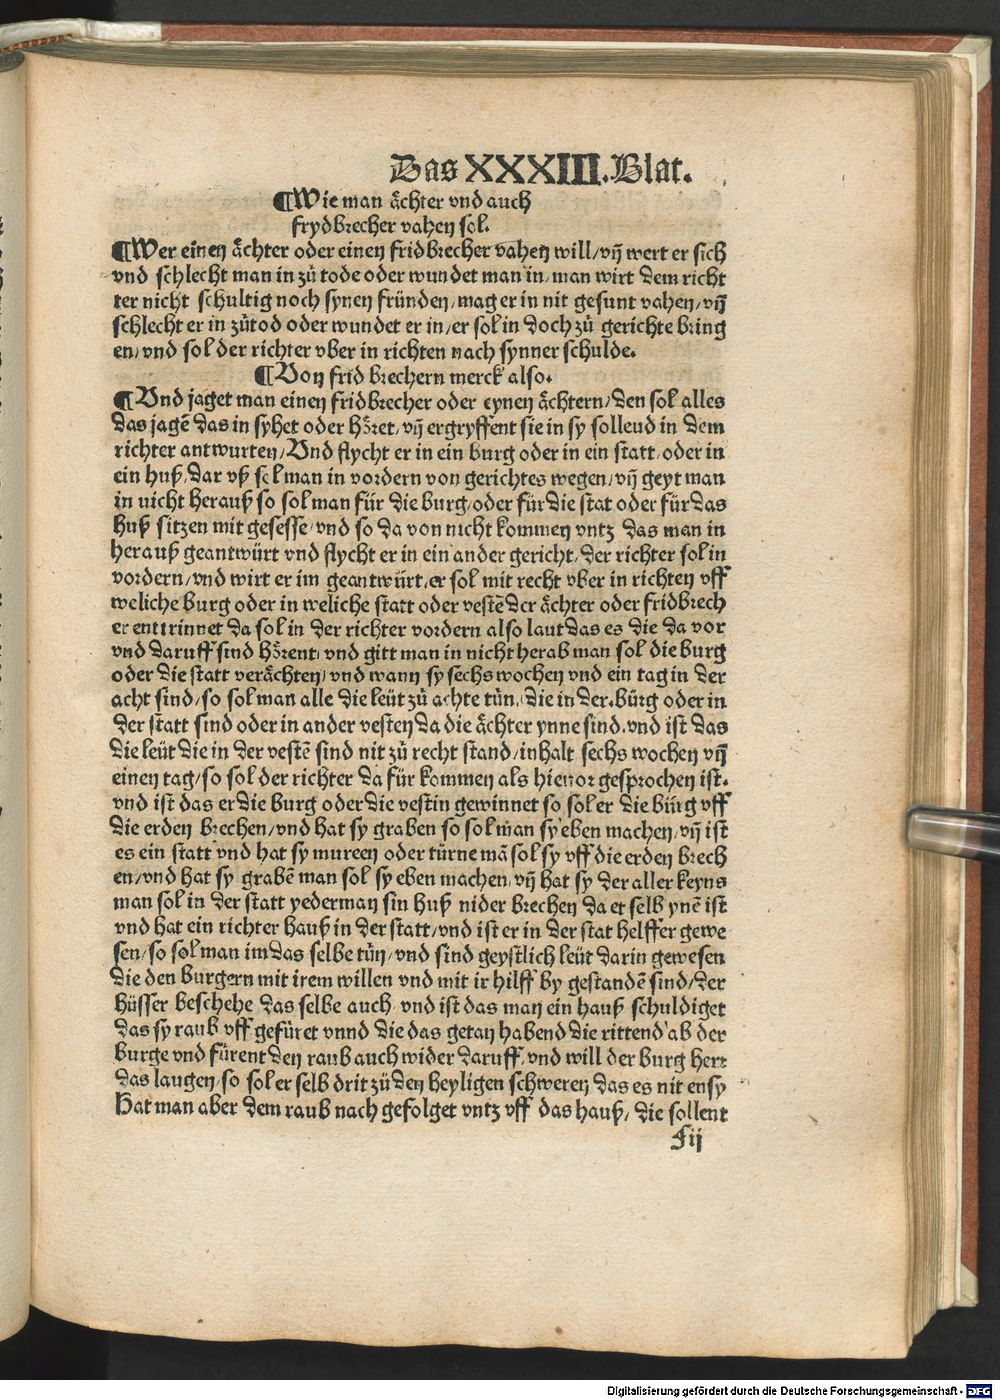 Das XXXIII. Blat.
¶Wie man ächter vnd auch
frydbrecher vahen sol.
¶Wer einen ächter oder einen fridbrecher vahen will/vn̄ wert er sich
vnd schlecht man in zů tode oder wundet man in/man wirt dem richt
ter nicht schultig noch synen fründen/mag er in nit gesunt vahen/vn̄
schlecht er in zůtod oder wundet er in/er sol in doch zů gerichte bring
en/vnd sol der richter vber in richten nach synner schulde.
¶Von frid brechern merck also.
¶Vnd jaget man einen fridbrecher oder eynen ächtern/den sol alles
das jagē das in syhet oder hŏret/vn̄ ergryffent sie in sy solleud in dem
richter antwurten/Vnd flycht er in ein burg oder in ein statt/oder in
ein huß/dar vß sol man in vordern von gerichtes wegen/vn̄ geyt man
in nicht herauß so sol man für die burg/oder für die stat oder für das
huß sitzen mit gesesse/vnd so da von nicht kommen vntz das man in
herauß geantwürt vnd flycht er in ein ander gericht/der richter sol in
vordern/vnd wirt er im geantwürt/er sol mit recht vber in richten vff
weliche burg oder in weliche statt oder vestē der ächter oder fridbrech
er entrinnet da sol in der richter vordern also laut das es die da vor
vnd daruff sind hŏrent/vnd gitt man in nicht herab man sol die burg
oder die statt verächten/vnd wann sy sechs wochen vnd ein tag in der
acht sind/so sol man alle die leüt zů achte tůn/die in der.bürg oder in
der statt sind oder in ander vesten da die ächter ynne sind.vnd ist das
die leüt die in der vestē sind nit zů recht stand/inhalt sechs wochen vn̄
einen tag/so sol der richter da für kommen als hieuor gesprochen ist.
vnd ist das er die burg oder die vestin gewinnet so sol er die bürg vff
die erden brechen/vnd hat sy graben so sol man sy eben machen/vn̄ ist
es ein statt vnd hat sy mureen oder türne mā sol sy vff die erden brech
en/vnd hat sy grabē man sol sy eben machen/vn̄ hat sy der aller keyns
man sol in der statt yederman sin huß nider brechen da er selb ynē ist
vnd hat ein richter hauß in der statt/vnd ist er in der stat helffer gewe
sen/so sol man im das selbe tůn/vnd sind geystlich leüt darin gewesen
die den burgern mit irem willen vnd mit ir hilff by gestandē sind/der
hüsser beschehe das selbe auch vnd ist das man ein hauß schuldiget
das sy raub vff gefüret vnnd die das getan habend die rittend ab der
burge vnd fürent den raub auch wider daruff/vnd will der burg herr
das laugen/so sol er selb drit zů den heyligen schweren das es nit ensy
Hat man aber dem raub nach gefolget vntz vff das hauß/die sollent
Fij
Digitalisierung gefördert durch die Deutsche Forschungsgemeinschaft - DFG